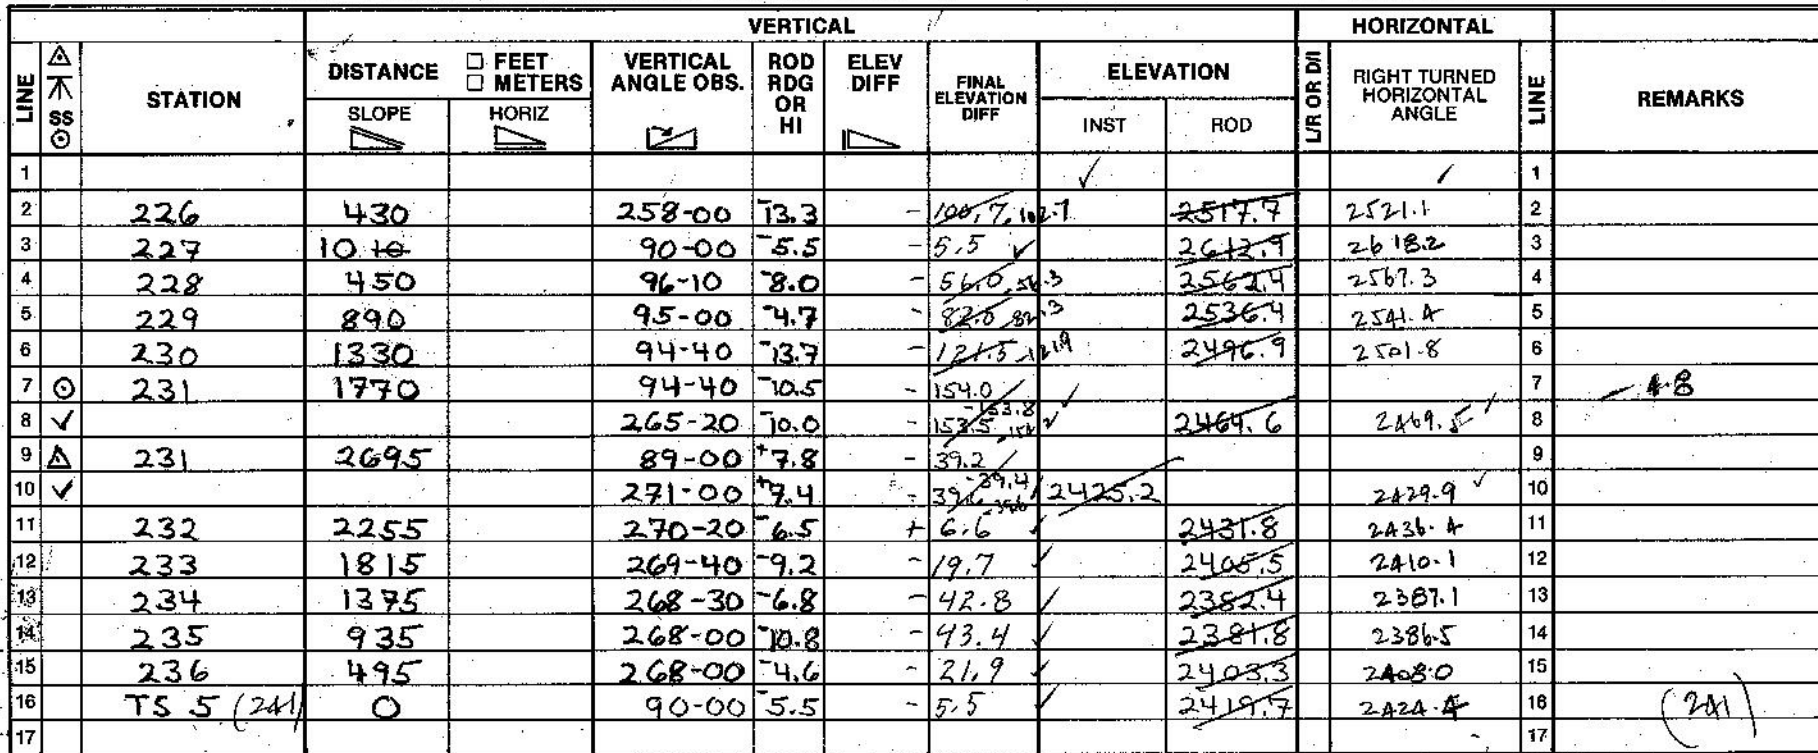 VERTICAL HORIZONTAL
LINE SS STATION DISTANCE □ FEET □ METERS SLOPE HORIZ VERTICAL ANGLE OBS. ROD RDG OR HI ELEV DIFF FINAL ELEVATION DIFF ELEVATION INST ROD L/R OR D/I RIGHT TURNED HORIZONTAL ANGLE LINE REMARKS
1 ✓ ✓ 1
2 226 430 258-00 -13.3 - 100.7 102.7 2517.7 2521.1 2
3 227 10 90-00 -5.5 - 5.5 ✓ 2612.9 2618.2 3
4 228 450 96-10 -8.0 - 56.0 56.3 2562.4 2567.3 4
5 229 890 95-00 -4.7 - 82.0 82.3 2536.4 2541.4 5
6 230 1330 94-40 -13.7 - 121.5 121.9 2496.9 2501.8 6
7 ⊙ 231 1770 94-40 -10.5 - 154.0 ✓ 7 - 4.8
8 ✓ 265-20 -10.0 - 153.5 -153.8 ✓ 2464.6 2469.5 ✓ 8
9 △ 231 2695 89-00 +7.8 - 39.2 9
10 ✓ 271-00 +7.4 - -39.4 2425.2 2429.9 ✓ 10
11 232 2255 270-20 -6.5 + 6.6 ✓ 2431.8 2436.4 11
12 233 1815 269-40 -9.2 - 19.7 ✓ 2405.5 2410.1 12
13 234 1375 268-30 -6.8 - 42.8 ✓ 2382.4 2387.1 13
14 235 935 268-00 -10.8 - 43.4 ✓ 2381.8 2386.5 14
15 236 495 268-00 -4.6 - 21.9 ✓ 2403.3 2408.0 15
16 TS 5 (241) 0 90-00 -5.5 - 5.5 ✓ 2419.7 2424.4 16 (241)
17 17